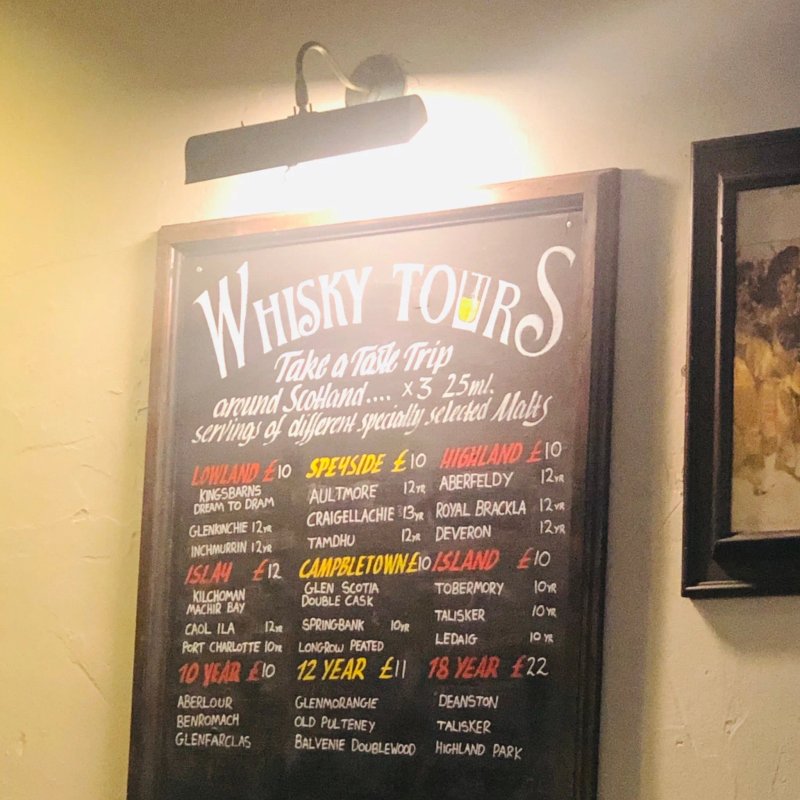 WHISKY TOURS
Take a Taste Trip
around Scotland.... x3 25ml.
servings of different specially selected Malts
LOWLAND £10
KINGSBARNS
DREAM TO DRAM
GLENKINCHIE 12YR
INCHMURRIN 12YR
SPEYSIDE £10
AULTMORE 12YR
CRAIGELLACHIE 13YR
TAMDHU 12YR
HIGHLAND £10
ABERFELDY 12YR
ROYAL BRACKLA 12YR
DEVERON 12YR
ISLAY £12
KILCHOMAN
MACHIR BAY
CAOL ILA 12YR
PORT CHARLOTTE 10YR
CAMPBLETOWN £10
GLEN SCOTIA
DOUBLE CASK
SPRINGBANK 10YR
LONGROW PEATED
ISLAND £10
TOBERMORY 10YR
TALISKER 10YR
LEDAIG 10 YR
10 YEAR £10
ABERLOUR
BENROMACH
GLENFARCLAS
12 YEAR £11
GLENMORANGIE
OLD PULTENEY
BALVENIE DOUBLEWOOD
18 YEAR £22
DEANSTON
TALISKER
HIGHLAND PARK